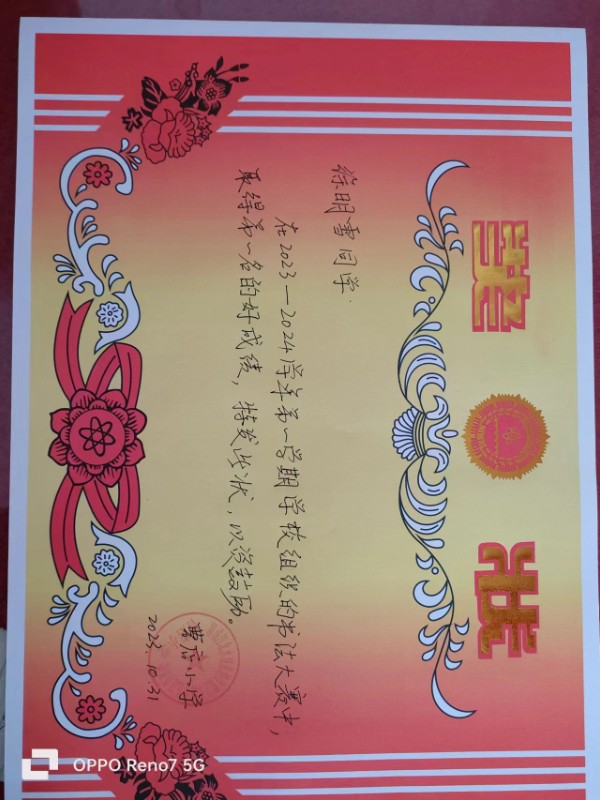 奖状
徐明雪同学:
在2023—2024学年第一学期学校组织的书法大赛中,
取得第一名的好成绩,特发此状,以资鼓励。
曹店小学
2023.10.31
OPPO Reno7 5G